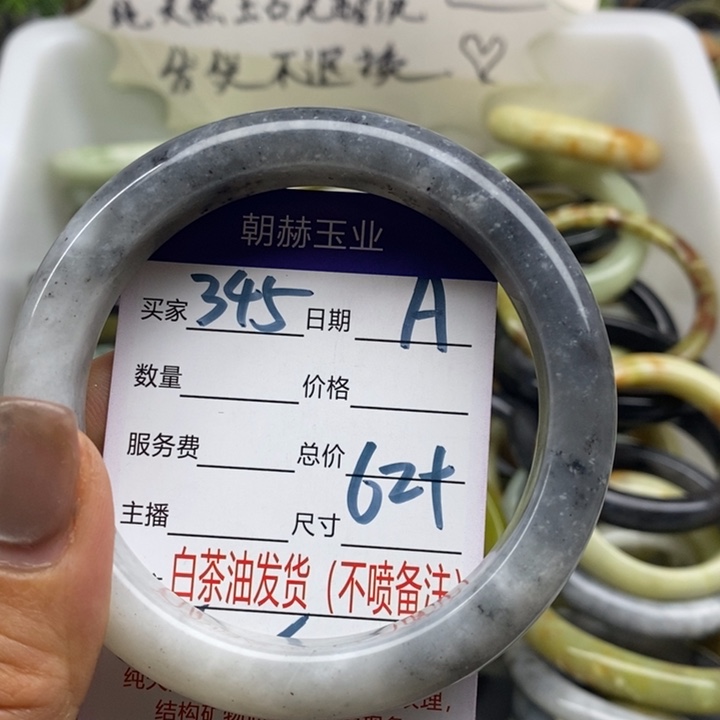 纯天然玉石无酸洗
售货不退换 ♡
朝赫玉业
买家 345 日期 A
数量 价格
服务费 总价 62+
主播 尺寸
白茶油发货（不喷备注）
纯天
结构矿物